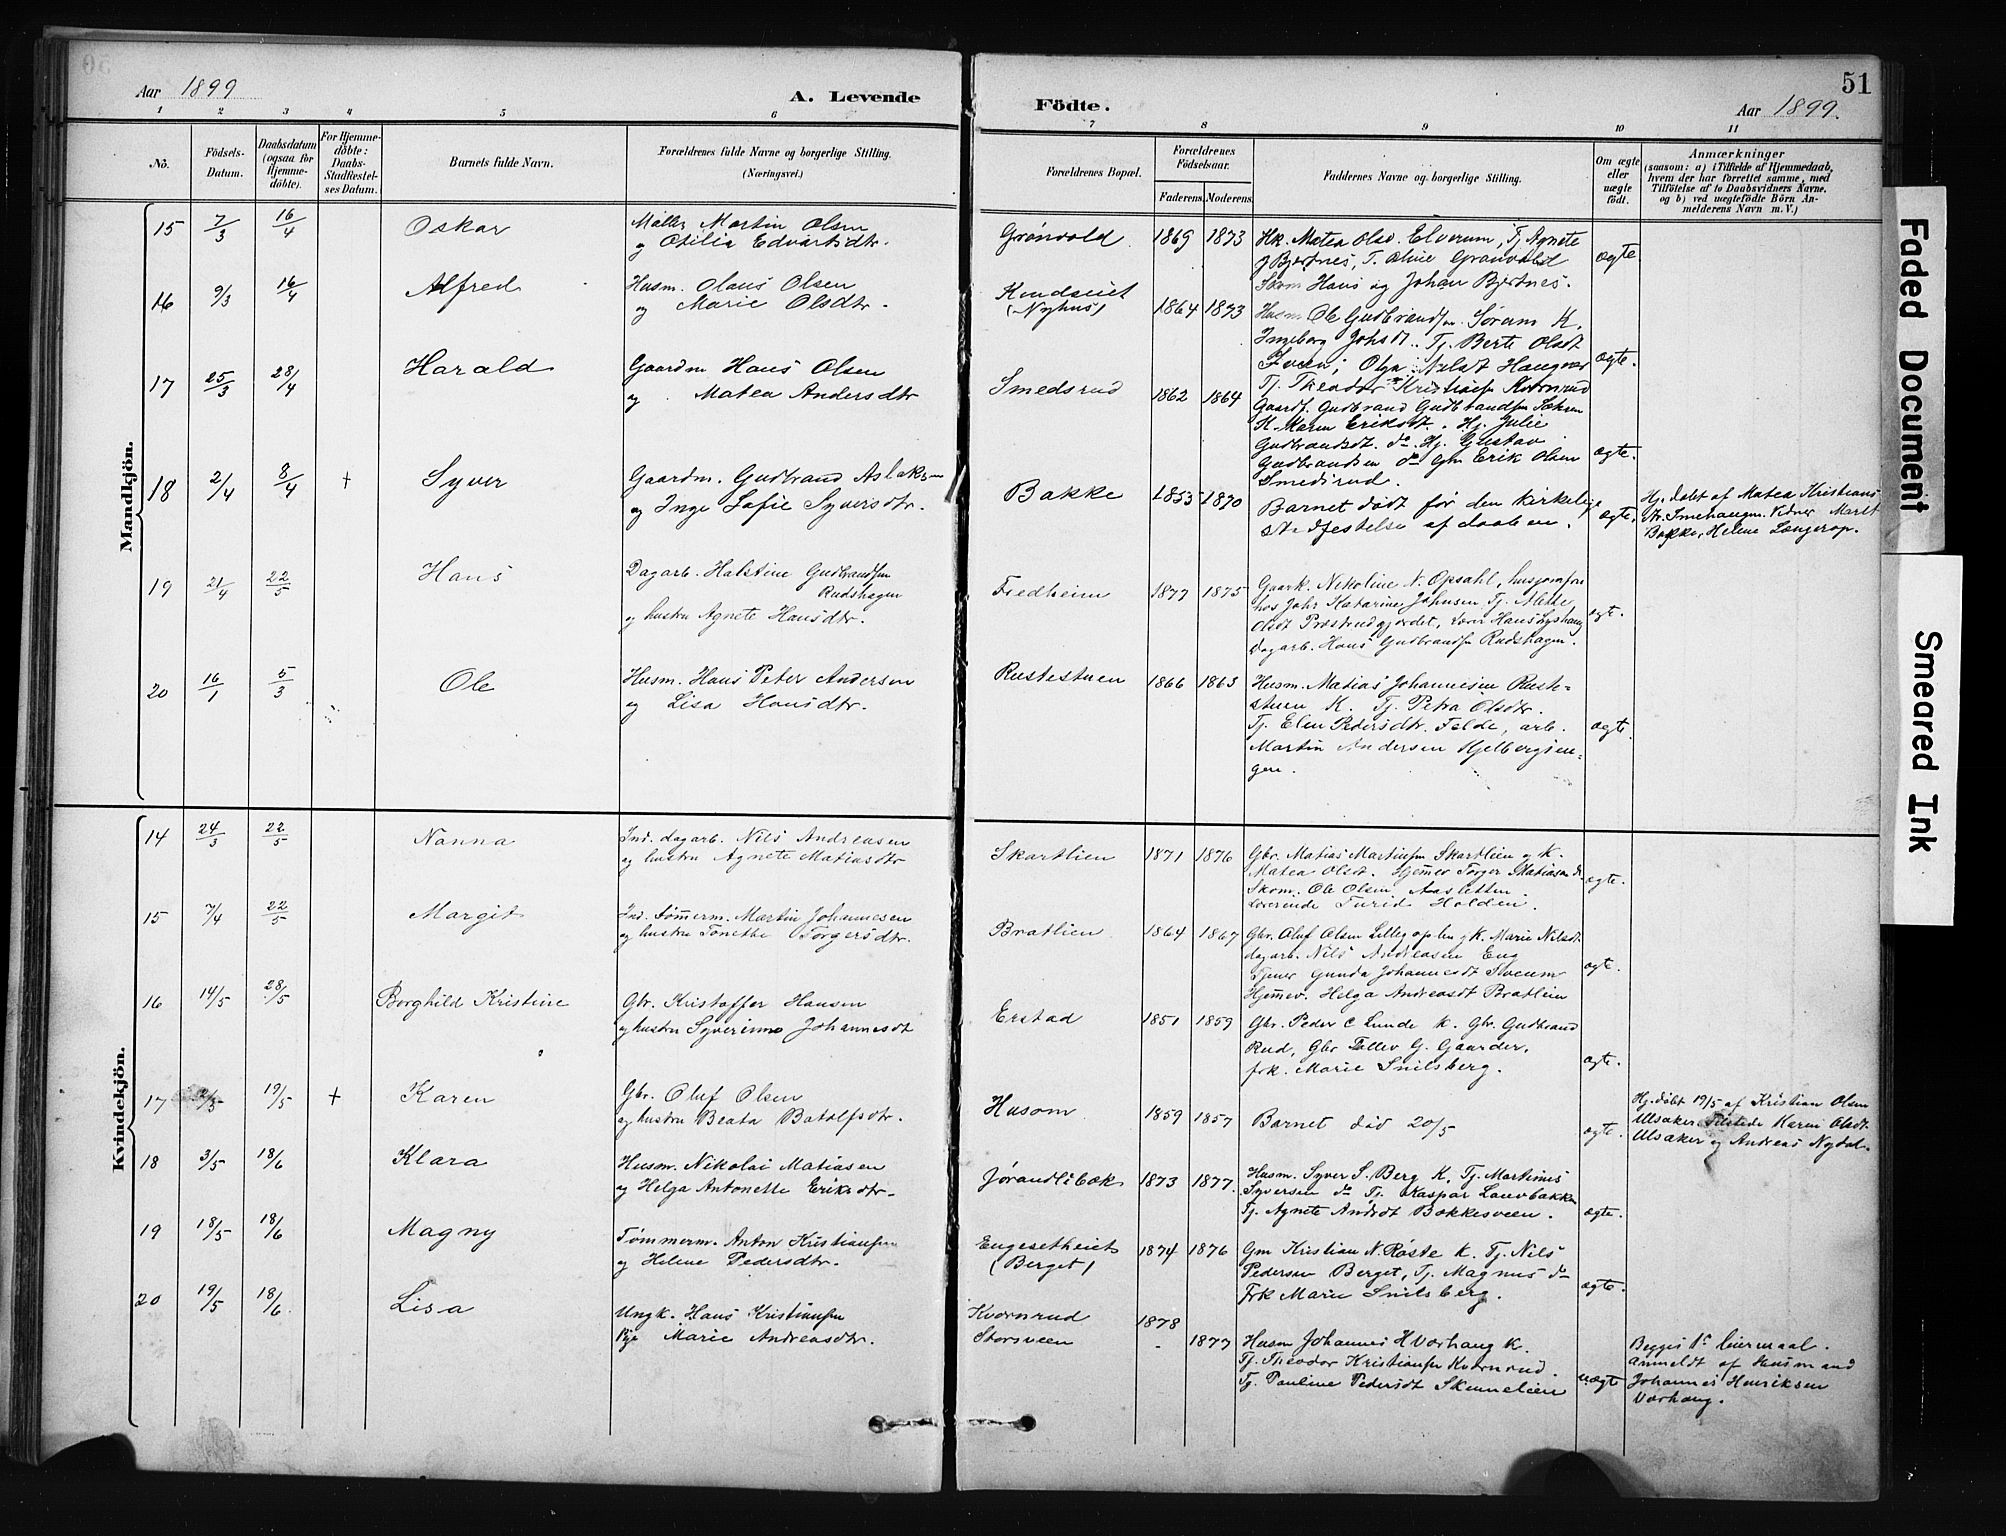 Aar 1899
A. Levende
1 2 3 4 5 6
Nô. Födsels-Datum. Daabsdatum (ogsaa for Hjemmedöbte). For Hjemmedöbte: Daabs-Stadfæstelses Datum. Barnets fulde Navn. Forældrenes fulde Navne og borgerlige Stilling. (Næringsvei.)
Mandkjön.
15 7/3 16/4 Oskar Møller Martin Olsen
og Otilia Edvartsdtr.
16 9/3 16/4 Alfred Husm. Olaus Olsen
og Marie Olsdtr.
17 25/3 28/4 Harald Gaardm Hans Olsen
og Matea Andersdtr
18 2/4 8/4 + Syver Gaardm. Gudbrand Aslaksen
og Inge Sofie Syversdtr.
19 21/4 22/5 Hans Dagarb. Halstine Gudbrandsen
Rudshagen
og hustru Agnete Hansdtr.
20 16/1 5/3 Ole Husm. Hans Peter Andersen
og Lisa Hansdtr.
Kvindekjön.
14 24/3 22/5 Nanna Ind. dagarb. Nils Andreasen
og hustru Agnete Matiasdtr
15 7/4 22/5 Margit Ind. Tømmerm. Martin Johannesen
og hustru Tonette Torgersdtr.
16 14/5 28/5 Borghild Kristine Gbr. Kristoffer Hansen
og hustru Syverinne Johannesdt
17 2/5 19/5 + Karen Gbr. Oluf Olsen
og hustru Beata Batolfsdtr.
18 3/5 18/6 Klara Husm. Nikolai Matiasen
og Helga Antonette Eriksdtr.
19 18/5 18/6 Magny Tømmerm. Anton Kristiansen
og Helene Pedersdtr.
20 19/5 18/6 Lisa Ungk. Hans Kristiansen
Pige Marie Andreasdtr.
51
Födte.
Aar 1899.
7 8 9 10 11
Forældrenes Bopæl. Forældrenes Födselsaar. Faderens Moderens Faddernes Navne og borgerlige Stilling. Om ægte eller uægte födt. Anmærkninger
(saasom: a) i Tilfælde af Hjemmedaab,
hvem der har forrettet samme, med
Tilföielse af to Daabsvidners Navne.
og b) ved uægtefödte Börn Anmelderens
Navn m. V.)
Grønvold 1869 1873 Hk. Matea Olsd. Elverum, Tj. Agnete
Bjertnes, T. Oline Grønvold
Skom Hans og Johan Bjertnes. ægte
(Nyhus) 1864 1873 Husm Ole Gudbrandsen Sørum K.
Ingeborg Johsdt. Tj. Berte Olsdt
Sveen, Olga Nilsdt
Tj. Theodor Kristiansen Kvernrud ægte.
Smedsrud 1862 1864 Gaardf. Gudbrand Gudbrandsen
K. Maren Eriksdt. Hj. Julie
Gudbrandsdt. do. Hj. Gustav
Gudbrandsen do Gm Erik Olsen
Smedsrud. ægte.
Bakke 1853 1870 Barnet dødt før den kirkelige
stadfestelse af daaben. ægte. Hj. døbt af Matea Kristians
dtr. Vidner Marit
Bakke, Helene Længerop.
Fredheim 1877 1875 Gaark. Nikoline N. Opsahl, husjomfru
hos Johs Katarine Johnsen Tj. Alette
Olsdt Præstrudgjerdet, Lærer Hans
Dagarb. Hans Gudbrandsen Rudshagen. ægte.
Rustestuen 1866 1863 Husm. Matias Johannesen Ruste-
stuen K. Tj. Petra Olsdtr.
Tj. Elen Pedersdtr. Felde, arb.
Martin Andersen Hjelbergsen-
gen. ægte.
Skartlien 1871 1876 Gbr. Matias Martinsen Skartlien og K.
Matea Olsdt. Hjemev Torger Matiasen do
Skom. Ole Olsen Aasletten.
Lærerinde Turid Holden. ægte.
Bratlien 1864 1867 Gbr. Oluf Olsen og K. Marie Nilsdt
dagarb. Nils Andreasen Eng
Tjener Gunda Johannesdt
Hjemev. Helga Andreasdt Bratlien ægte.
Erstad 1851 1859 Gbr. Peder C Lunde K. Gbr. Gudbrand
Rud, Gbr Tollev G. Gaarder.
frk. Marie Snilsberg. ægte.
Husom 1859 1857 Barnet død 20/5 ægte. Hj. døbt 19/5 af Kristian Olsen
Ulsaker. Tilstede Karen Olsdt.
Ulsaker og Andreas Nydal.
Jørandlibæk 1873 1877. Husm. Syver S. Berg K. Tj. Martinus
Syversen do Tj. Kaspar Lauvbakken
Tj. Agnete Andrdt Bakkesveen. ægte.
Engesetheiet
(Berget) 1874 1876 Gm Kristian N. Røste K. Tj. Nils
Pedersen Berget, Tj. Magnus do
Frk Marie Snilsberg. ægte.
Kvernrud 1878
Storsveen 1877 Husm Johannes H Varhaug K.
Tj. Theodor Kristiansen Kvernrud.
Tj. Pauline Pedersdt Skennelien uægte Begges 1ste leiermaal.
anmeldt af Husmand
Johannes Henriksen
Varhaug.
Faded Document
Smeared Ink